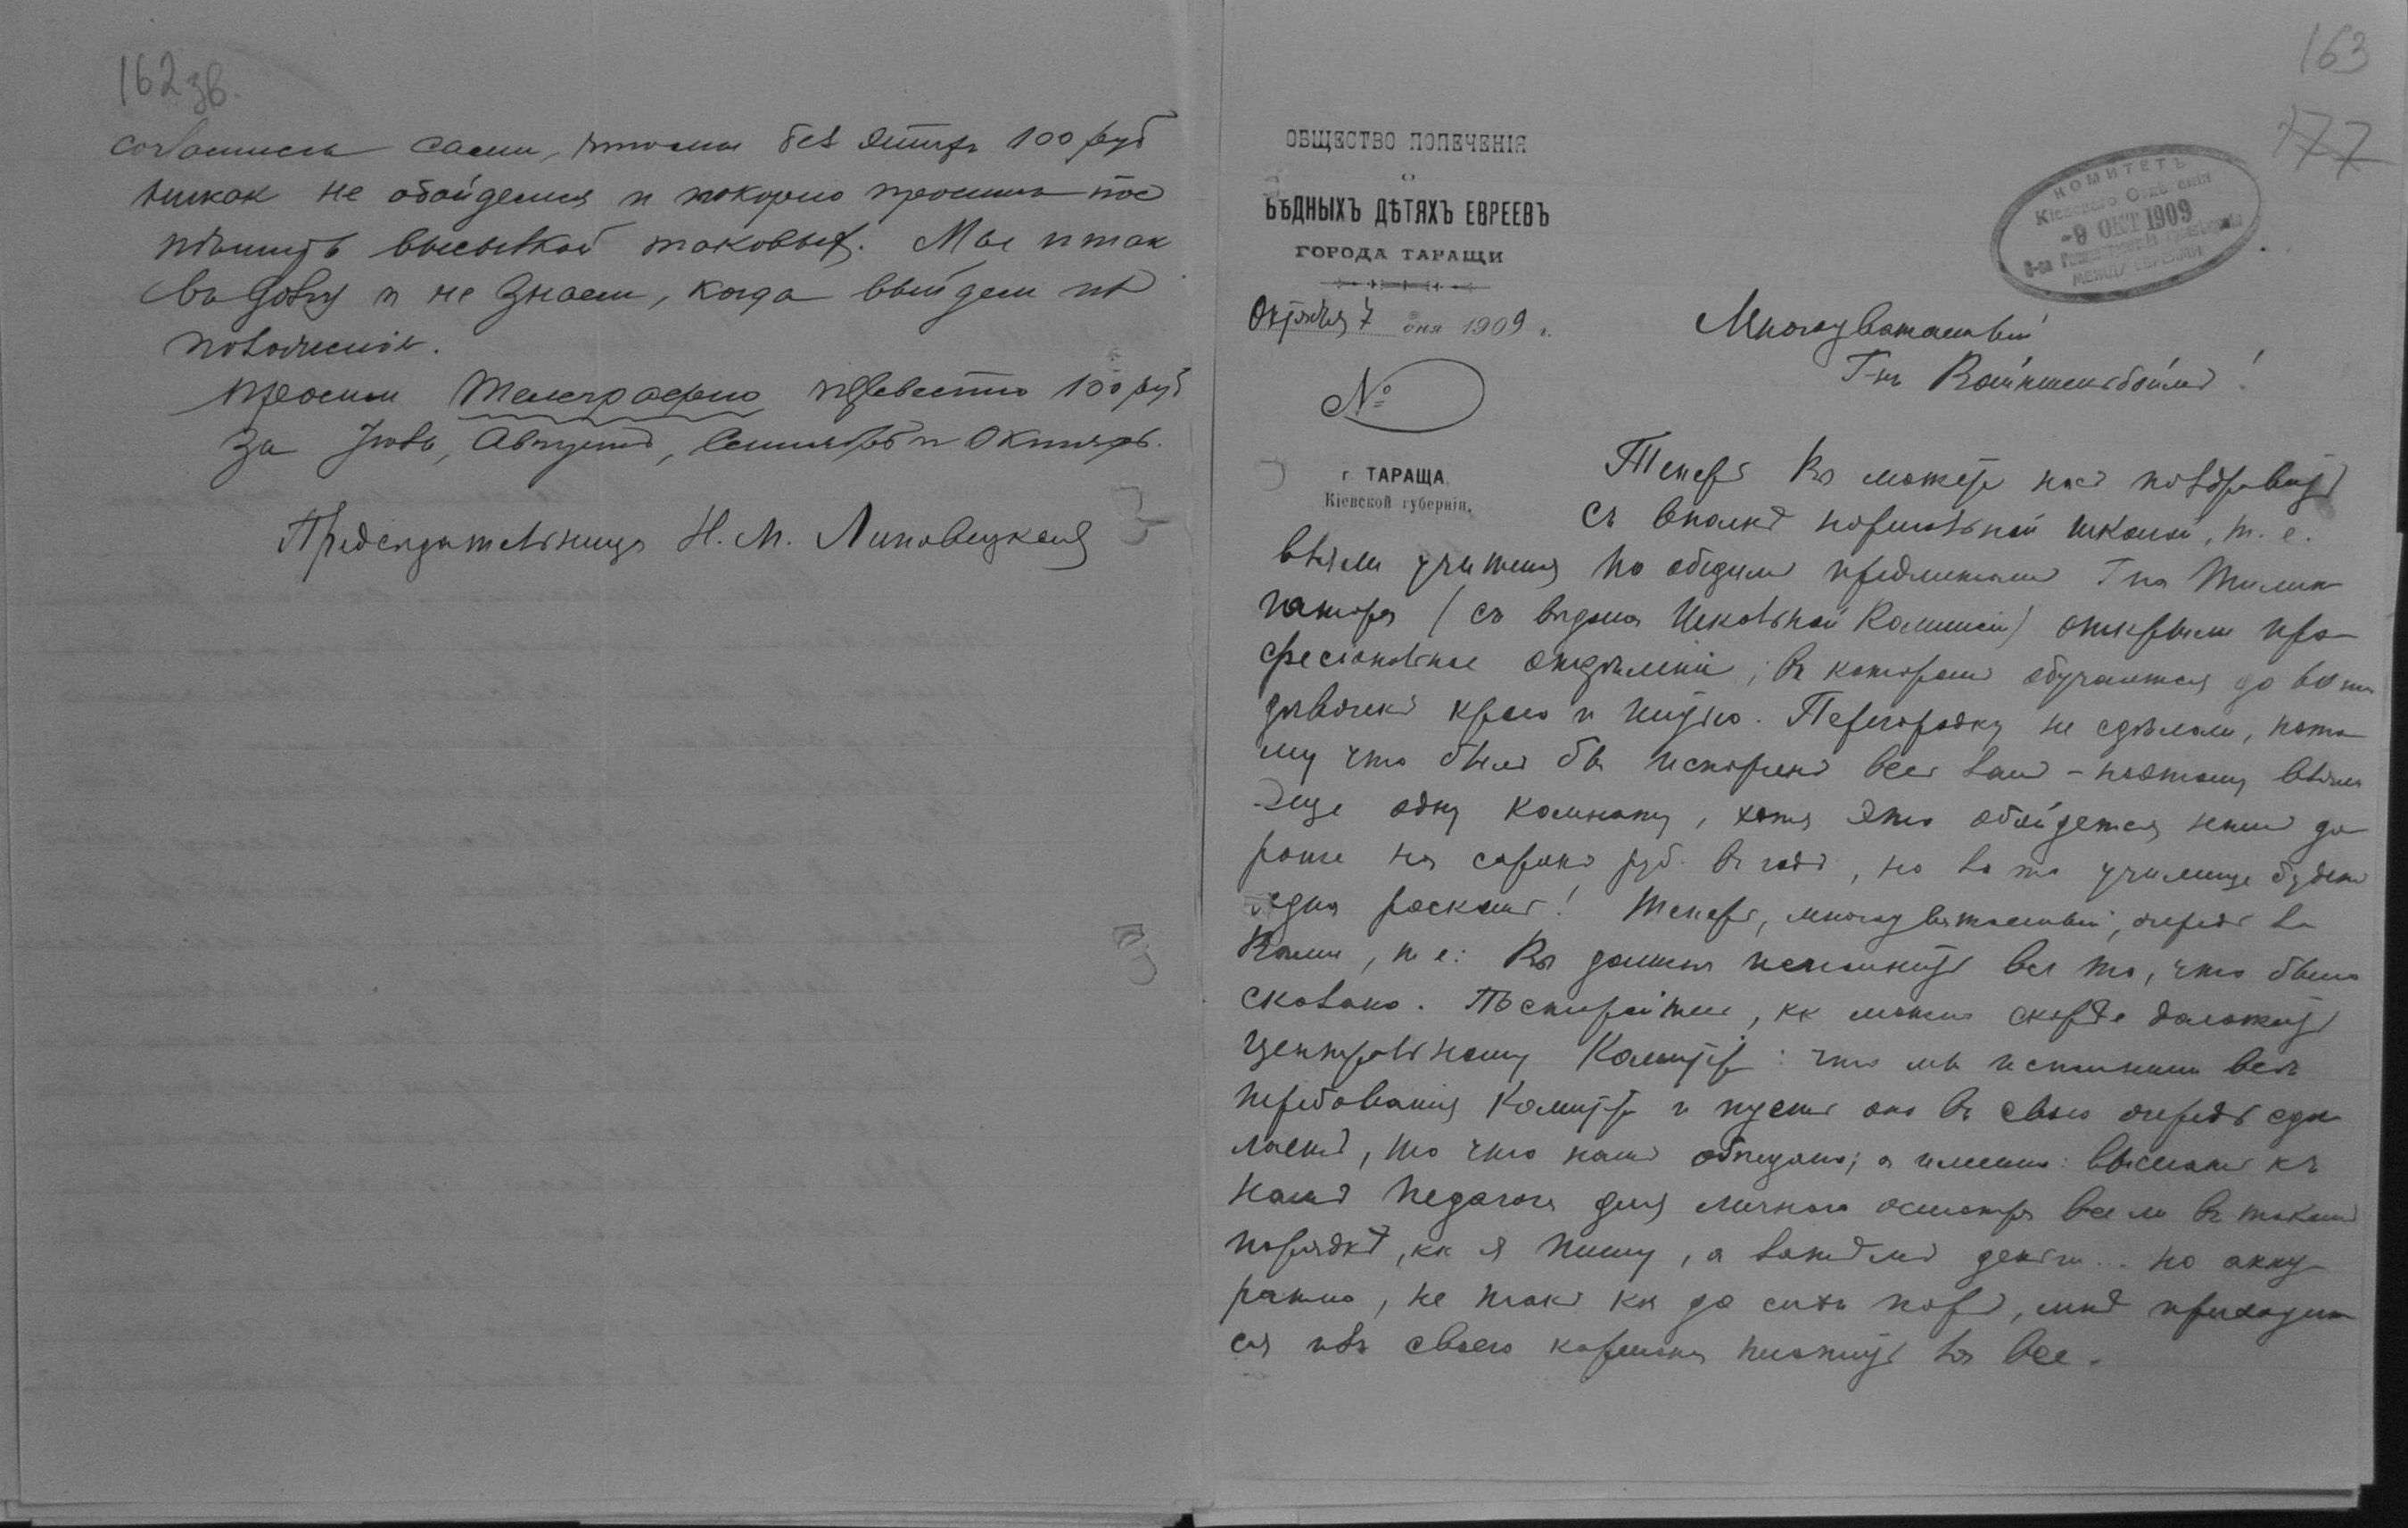 162 зв.
согласитесь сами, что мы без этихъ 100 руб
никак не обойдемся и покорно просим пос
пѣшить высылкой таковых. Мы и так
в долгу и не знаем, когда выйдем из
положения.
просим Телеграфно перевести 100 руб
за Июль, Августъ, Сентябрь и Октябрь.
Председательница Н. М. Липовецкая
163
177
ОБЩЕСТВО ПОПЕЧЕНІЯ
О
БѢДНЫХЪ ДѢТЯХЪ ЕВРЕЕВЪ
ГОРОДА ТАРАЩИ
Октября 7 дня 1909 г.
№
г ТАРАЩА,
Кіевской губерніи.
КОМИТЕТЪ
Кіевскаго Отдѣленія
-9 ОКТ 1909
О-ва
МЕЖДУ ЕВРЕЯМИ
Многоуважаемый
Г-нъ Вайнштейн!
Теперь Вы можете насъ поздравить
съ вполнѣ нормальной школой, т. е.
взяли учителя по общимъ предметамъ Г-на
(съ вѣдома Школьной Комиссіи) открыли про
фесіональное отдѣленіе, въ которомъ обучаются до
дѣвочекъ кройкѣ и шитью. Перегородку не сдѣлали, пото
му что былъ бы испорченъ весь залъ - поэтому взяли
еще одну комнату, хотя это обойдется намъ до
роже на сорокъ руб. въ годъ, но за то училище будетъ
одна роскошь! Теперь, многоуважаемый, очередь за
Вами, т. е: Вы должны исполнить все то, что было
сказано. Постарайтесь, кк можно скорѣе доложить
Центральному Комитету: что мы исполнили всѣ
требованія Комитета и пусть онъ въ свою очередь сдѣ
лаетъ, то что намъ обѣщано; а именно: выслать къ
намъ педагога для личнаго осмотра все ли въ такомъ
порядкѣ, кк я пишу, а затѣмъ деньги... но акку
ратно, не такъ кк до сихъ поръ, мнѣ приходит
ся изъ своего кармана платить за все.